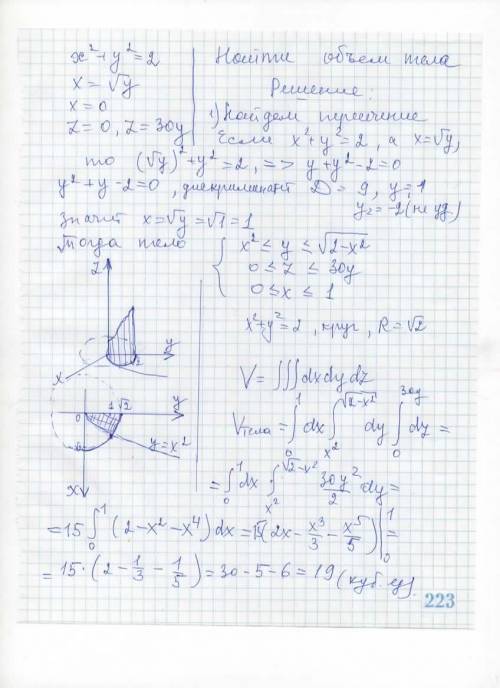 x² + y² = 2
x = √y
x = 0
z = 0, z = 30y
Найти объем тела
Решение:
1) Найдем пересечение
Если x² + y² = 2, а x = √y,
то (√y)² + y² = 2, => y + y² - 2 = 0
y² + y - 2 = 0, дискриминант D = 9, y = 1
y₂ = -2 (не уд.)
Значит x = √y = √1 = 1
Тогда тело
{ x² ≤ y ≤ √2-x²
0 ≤ z ≤ 30y
0 ≤ x ≤ 1
x² + y² = 2, круг, R = √2
z
y
x
√2
V = ∫∫∫ dxdydz
0 1 √2 y
y = x²
x
Vтела = ∫₀¹ dx ∫_{x²}^{√2-x²} dy ∫₀^{30y} dz =
= ∫₀¹ dx · ∫_{x²}^{√2-x²} 30y²/2 dy =
= 15 ∫₀¹ (2 - x² - x⁴) dx = 15(2x - x³/3 - x⁵/5) |₀¹ =
= 15 · (2 - 1/3 - 1/5) = 30 - 5 - 6 = 19 (куб. ед).
223